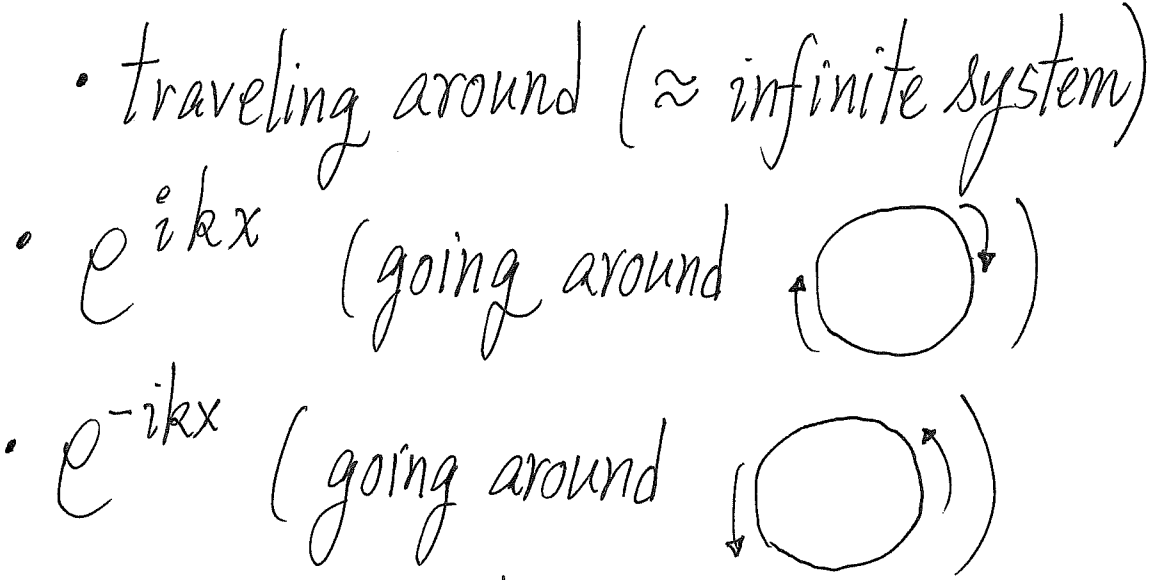 • traveling around (≈ infinite system)
• e^{ikx} (going around )
• e^{-ikx} (going around )